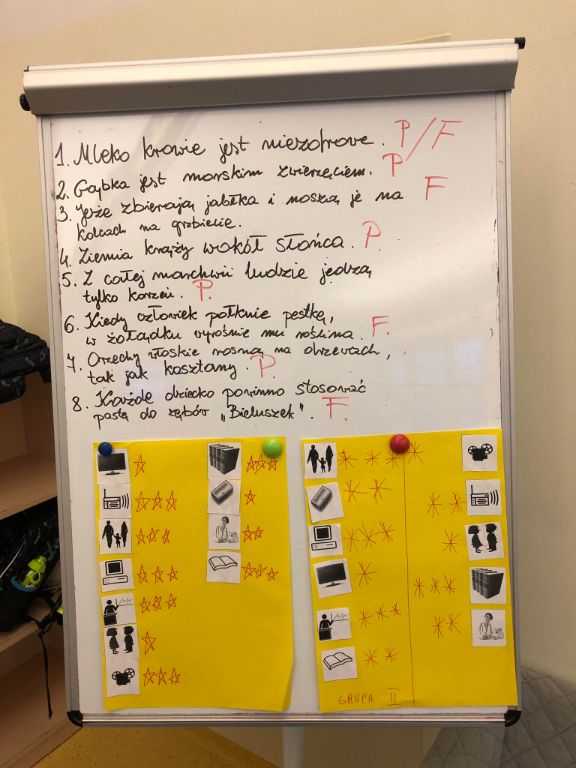 1. Mleko krowie jest niezdrowe. P/F
2. Gąbka jest morskim zwierzęciem. P
3. Jeże zbierają jabłka i noszą je na F
kolcach na grzbiecie.
4. Ziemia krąży wokół słońca. P.
5. Z całej marchwii ludzie jedzą
tylko korzeń. P.
6. Kiedy człowiek połknie pestkę,
w żołądku wyrośnie mu roślina. F.
7. Orzechy włoskie rosną na drzewach,
tak jak kasztany. P.
8. Każde dziecko powinno stosować
pastę do zębów „Bieluszek". F.
GRUPA II